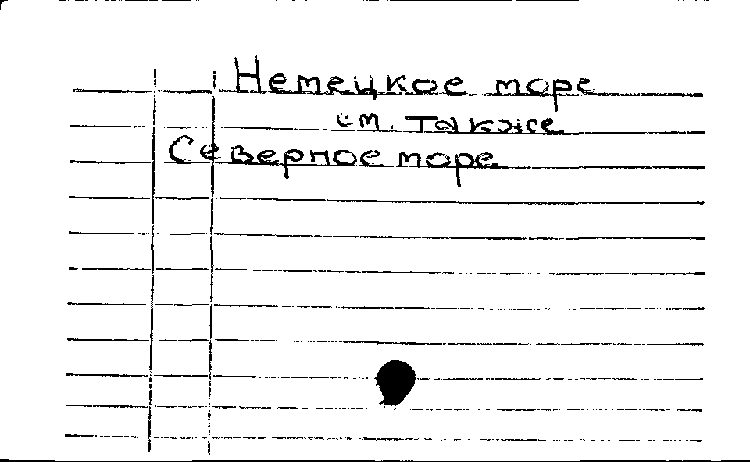 Немецкое море
см. также
Северное море